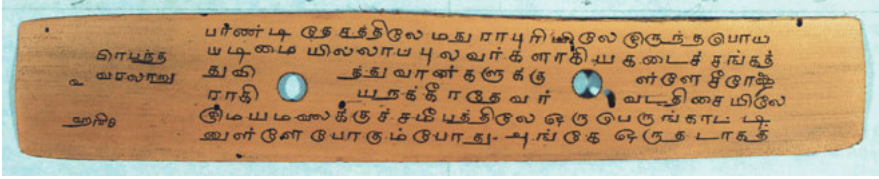 வரலாறு
பாண்டி தேசத்திலே மதுராபுரியிலே இருந்தபொய
யடிமை யில்லாப புலவர்க ளாகிய கடைச் சங்கத்
துவி த்துவான்களுக்கு ள்ளே
ராகி யநக்கீரதேவர் வடதிசையிலே
இமயமலைக்குச் சமீபத்திலே ஒருபெருங்காட் டி
னுள்ளே போகும்போது- அங்கே ஒருதடாகத்